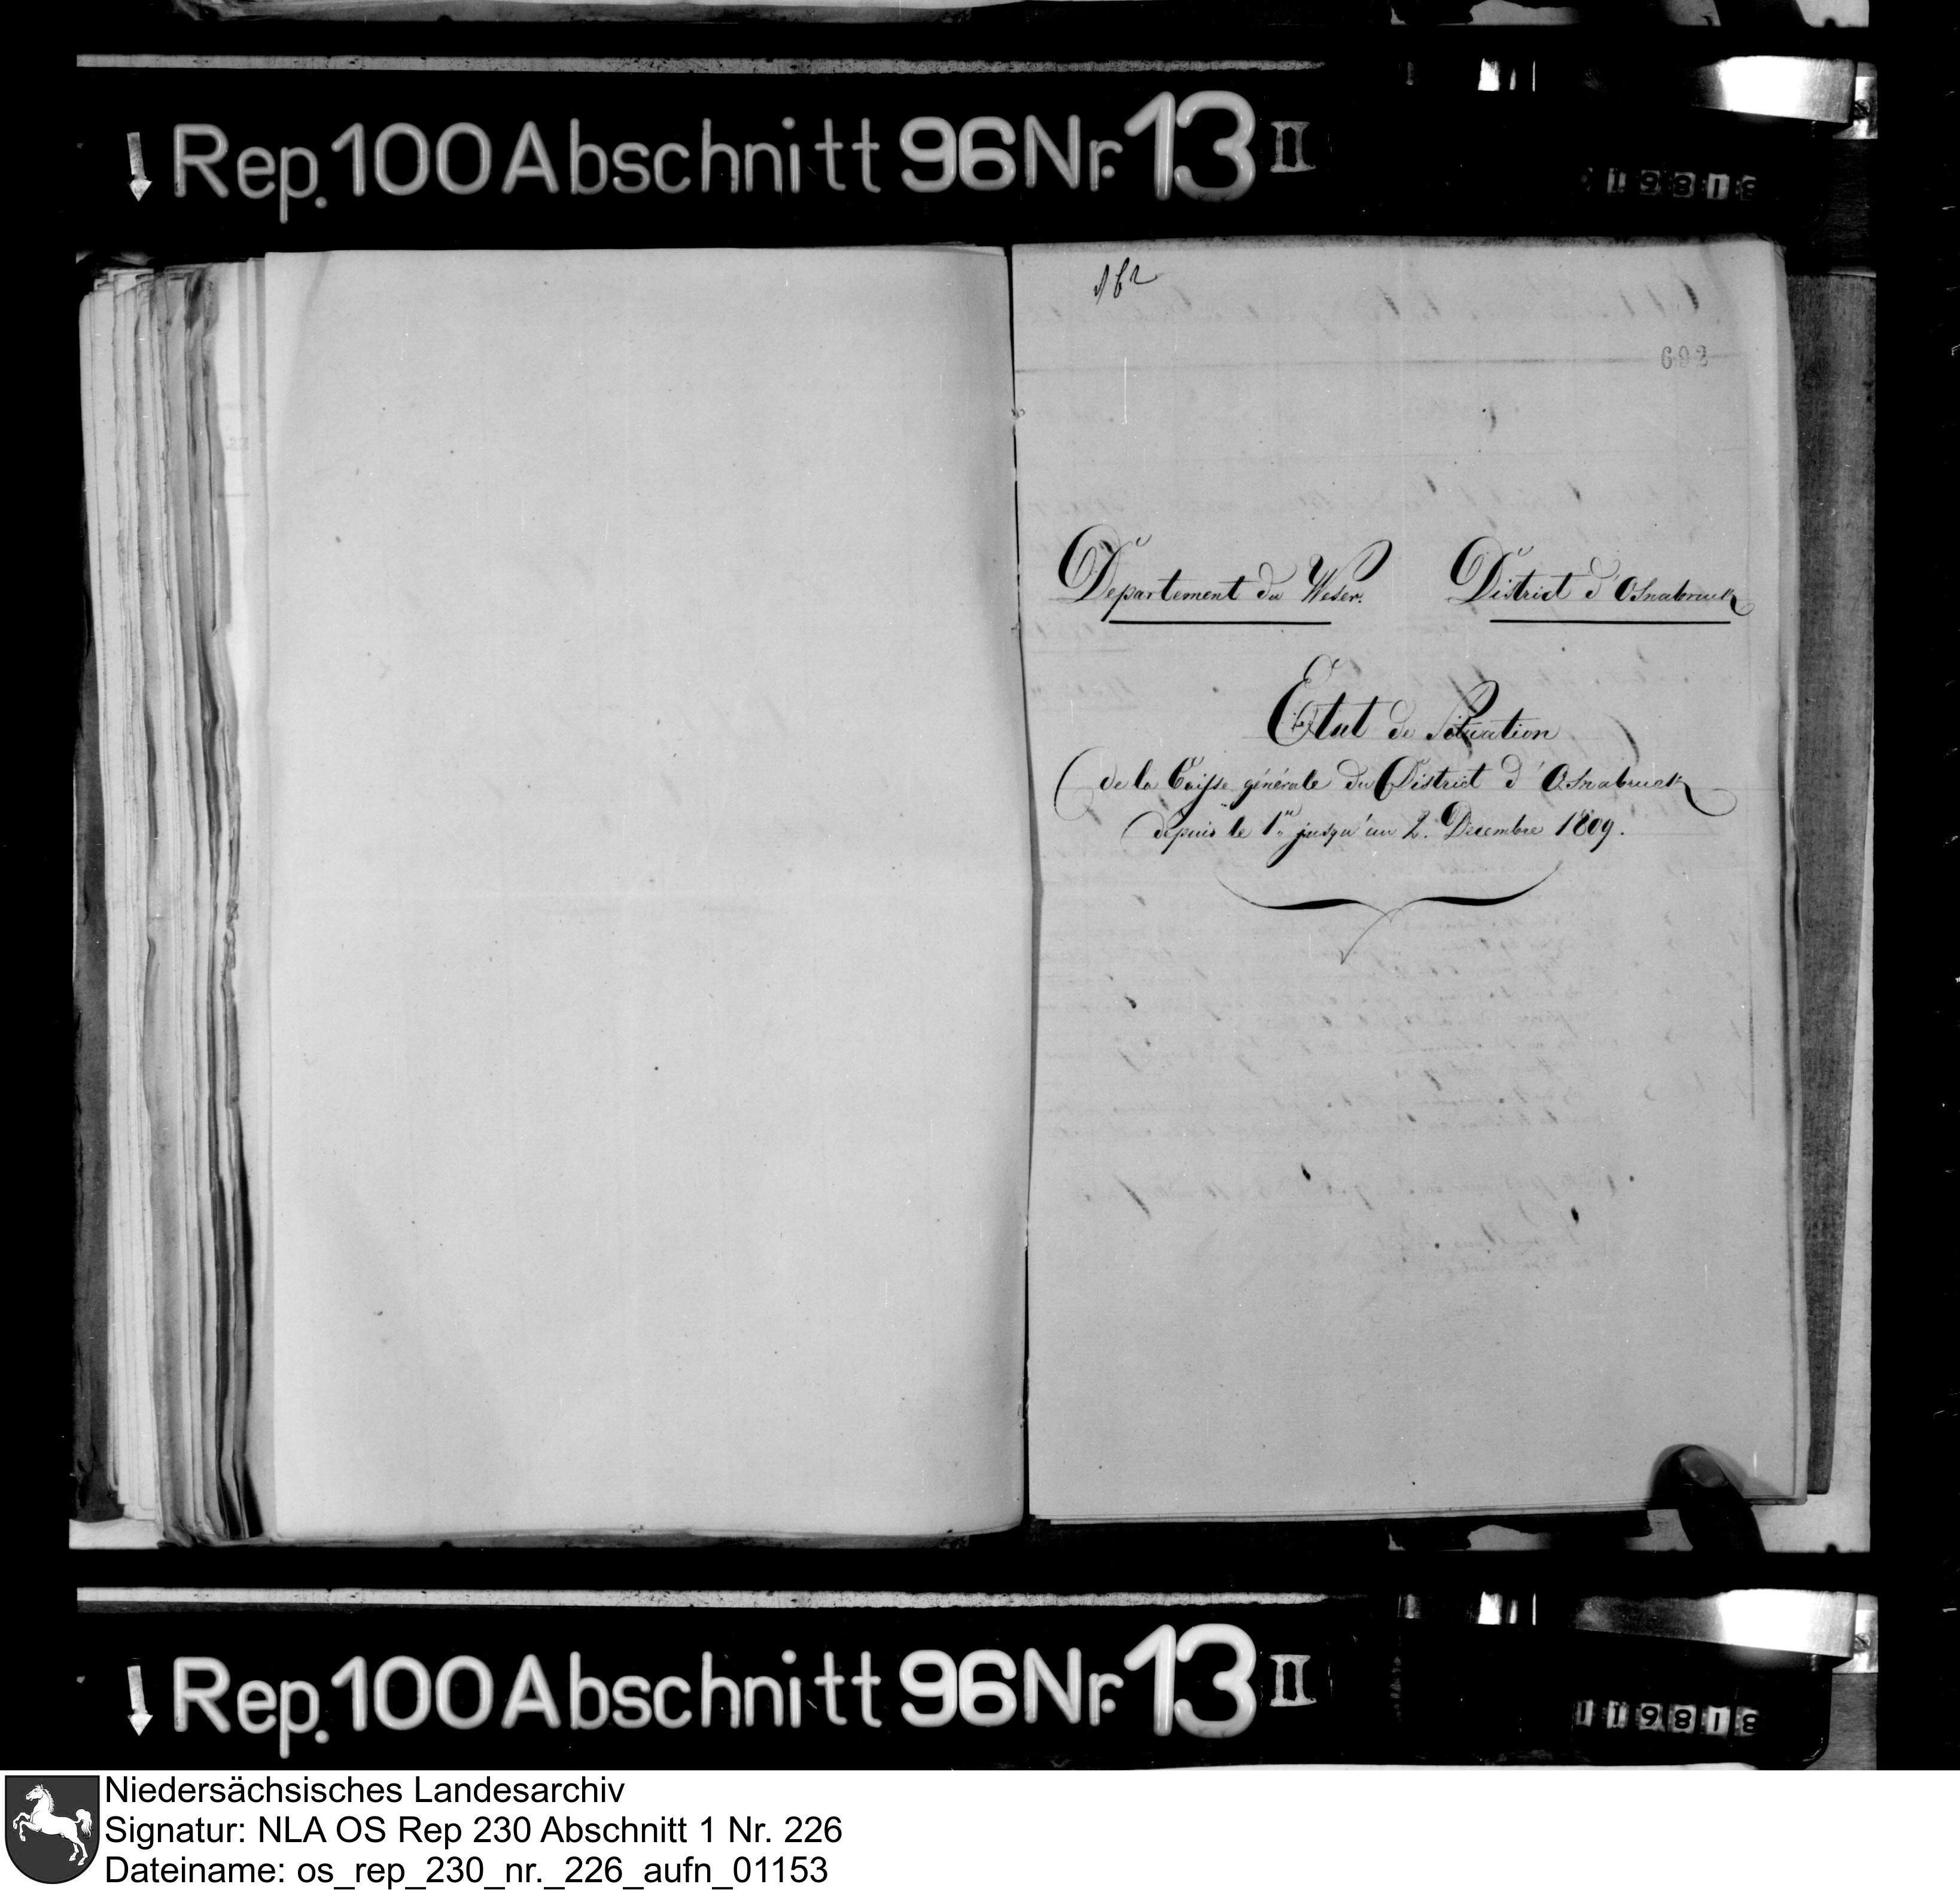 Rep. 100 Abschnitt 96 Nr. 13 II
162
692
Departement du Weser. District d'Osnabruck
Etat de Situation
de la Caisse générale du District d'Osnabruck
depuis le 1er jusqu'au 2. Decembre 1809.
Rep. 100 Abschnitt 96 Nr. 13 II
Niedersächsisches Landesarchiv
Signatur: NLA OS Rep 230 Abschnitt 1 Nr. 226
Dateiname: os_rep_230_nr._226_aufn_01153